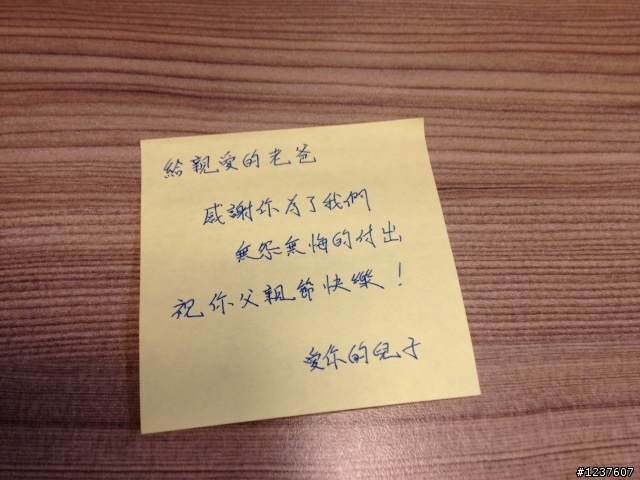 給親愛的老爸
感謝你為了我們
無怨無悔的付出
祝你父親節快樂！
愛你的兒子
#1237607